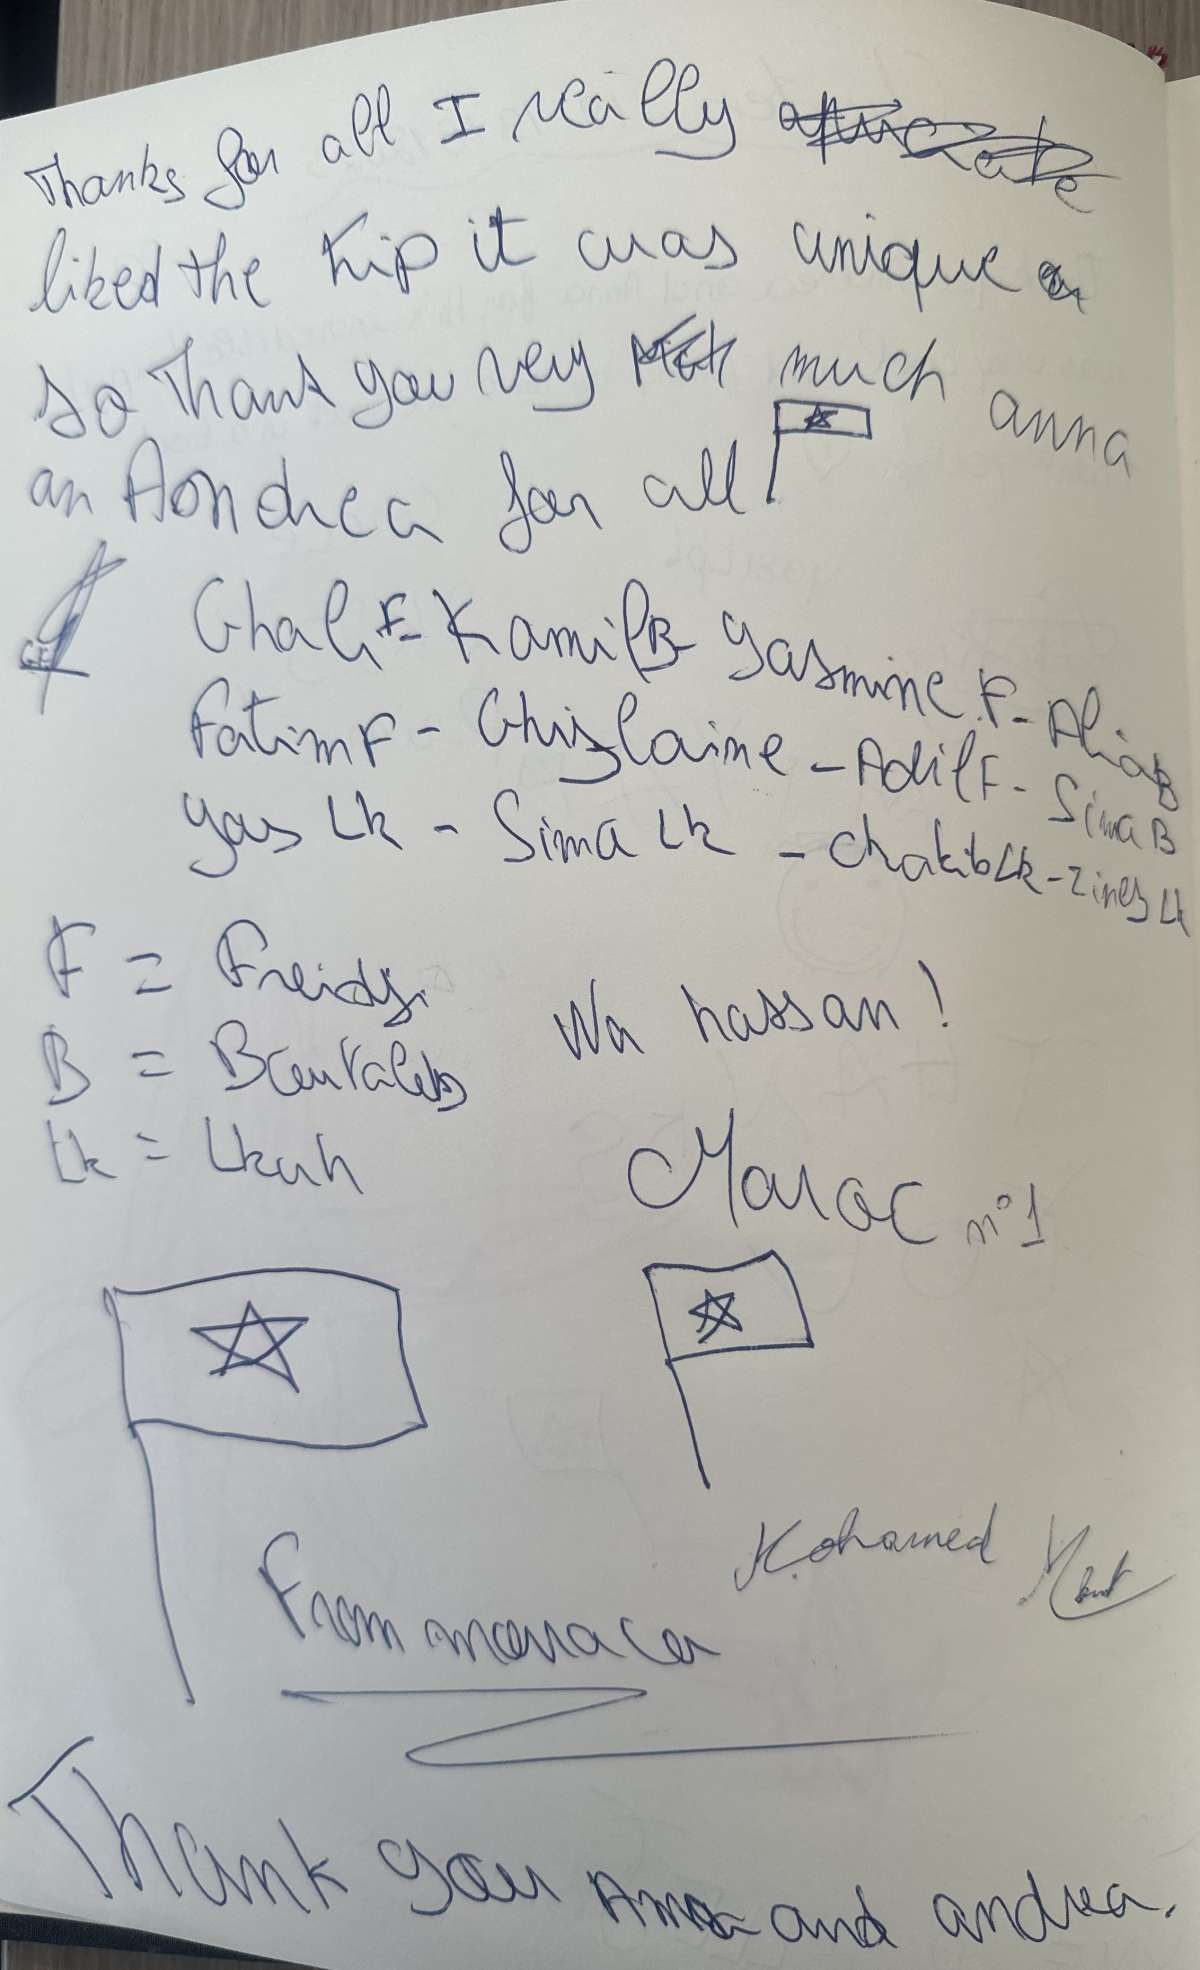 Thanks for all I really
liked the trip it was unique
so Thank you very much anna
an Aondrea for all
Ghali F - Kamil B Yasmine F - Alia B
Fatim F - Ghizlaine - Adil F - Sima B
Yas Lk - Sima Lk - Chakib Lk - Zineb Lk
F =
B =
Lk =
Wa hassan !
Maroc n°1
From
Mohamed
Thank you Anna and andrea.